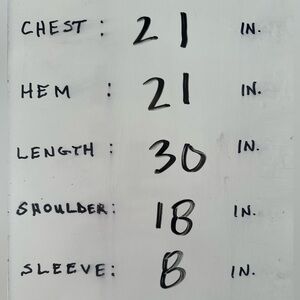 CHEST: 21 IN.
HEM: 21 IN.
LENGTH: 30 IN.
SHOULDER: 18 IN.
SLEEVE: 8 IN.